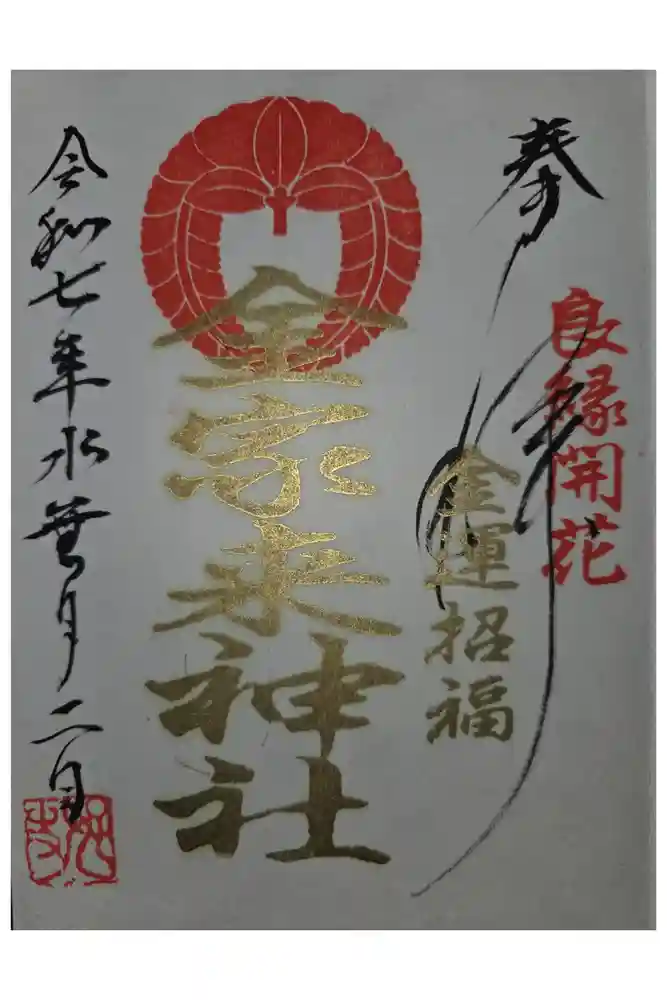 奉拝
良縁開花
金運招福
金家来神社
令和七年水無月二日